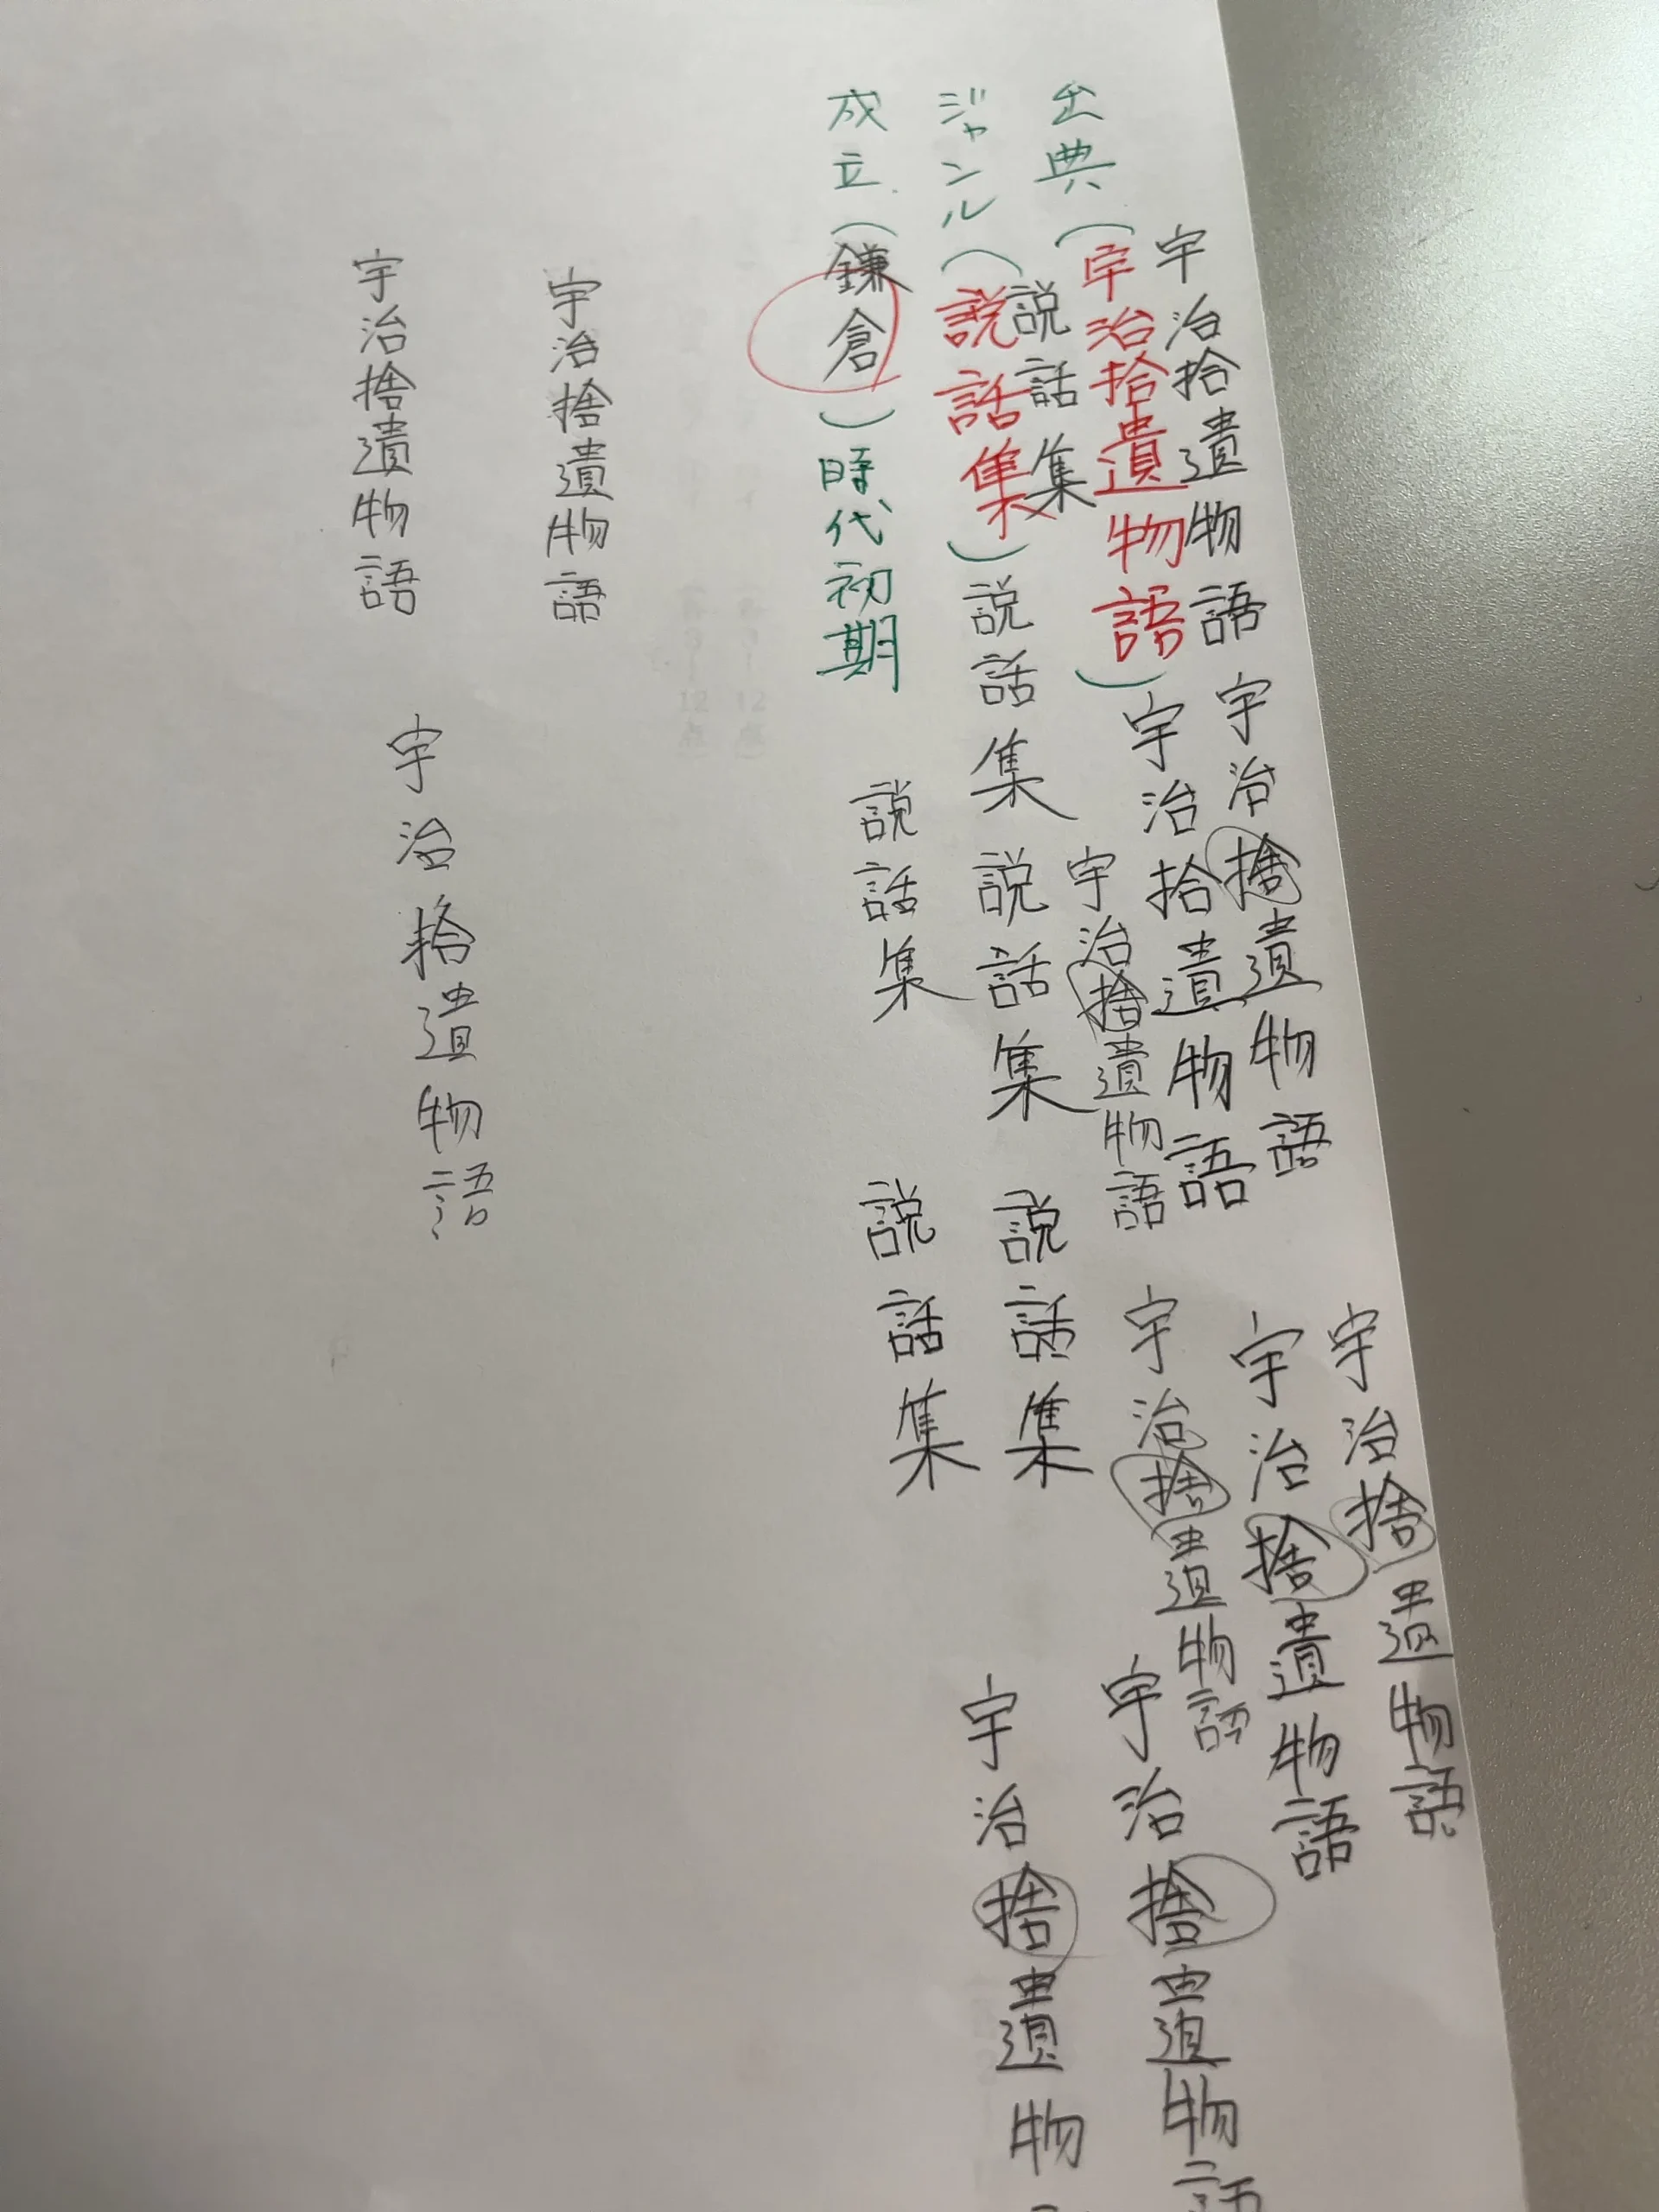 宇治拾遺物語
宇治捨遺物語
宇治捨遺物語
出典(宇治拾遺物語)
宇治拾遺物語
宇治捨遺物語
宇治捨遺物語
宇治捨遺物語
宇治捨遺物語
説話集
ジャンル(説話集)
説話集
説話集
説話集
宇治捨遺物
成立(鎌倉)時代初期
説話集
説話集
宇治捨遺物語
宇治捨遺物語
宇治拾遺物語